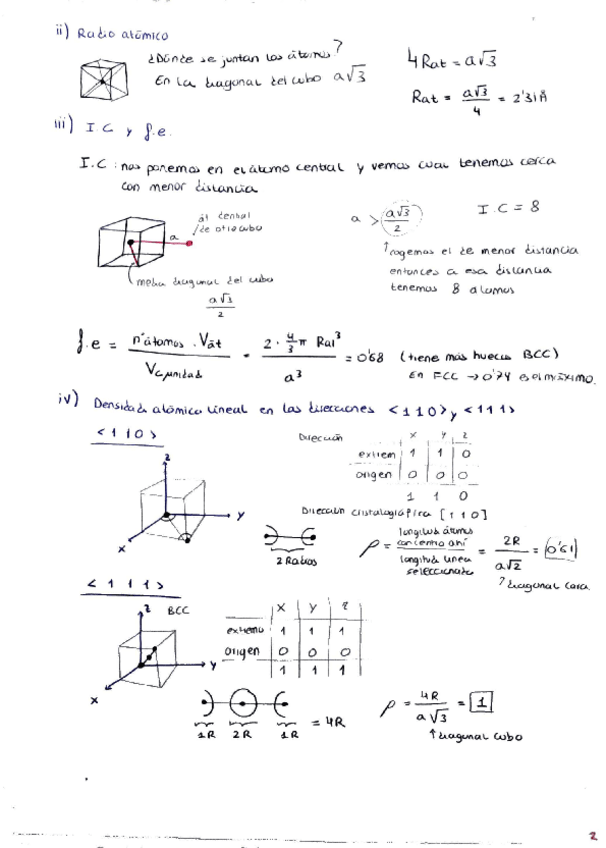 ii) Radio atómico
¿Dónde se juntan los átomos?
En la diagonal del cubo a√3
4Rat = a√3
Rat = a√3/4 = 2'31 Å
iii) I.C y f.e.
I.C: nos ponemos en el átomo central y vemos cual tenemos cerca
con menor distancia
át central
de otro cubo
a
media diagonal del cubo
a√3/2
a > a√3/2
I.C = 8
↑ cogemos el de menor distancia
entonces a esa distancia
tenemos 8 átomos
f.e = nºátomos · Vát / Vc.unidad = 2 · 4/3 π Rat³ / a³ = 0'68 (tiene más huecos BCC)
En FCC → 0'74 es el máximo.
iv) Densidad atómica lineal en las direcciones <110> y <111>
<110>
z
y
x
Dirección x y z
extrem 1 1 0
origen 0 0 0
1 1 0
Dirección cristalográfica [110]
2 Radios
ρ = longitud átomos con centro ahí / longitud linea seleccionada = 2R / a√2 = 0'61
↑ diagonal cara
<111>
z BCC
y
x
x y z
extremo 1 1 1
origen 0 0 0
1 1 1
1R 2R 1R = 4R
ρ = 4R / a√3 = 1
↑ diagonal cubo
2